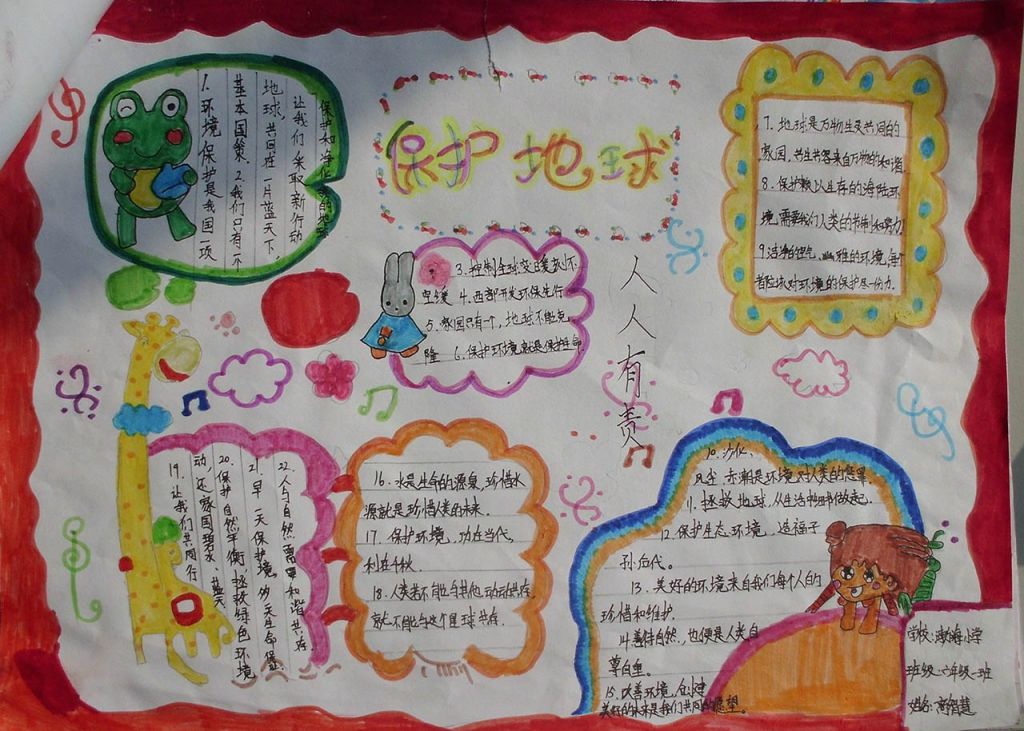 保护地球
人人有责
1.环境保护是我国一项
基本国策.2.我们只有一个
地球,共同在一片蓝天下,
让我们采取新行动
3.控制全球变暖
4.西部开发环保先行
5.家园只有一个,地球不能克
隆 6.保护环境就是保护生命
7.地球是万物生灵共同的
家园,共生共荣来自万物的和谐
8.保护赖以生存的海陆环
境,需要我们人类的节制和努力
9.洁净的空气,的环境,每个
对环境的保护尽一份力.
10.沙化、
风尘、赤潮是环境对人类的惩罪
11.拯救地球,从生活中做起.
12.保护生态环境,造福子
孙后代。
13.美好的环境来自我们每个人的
珍惜和维护.
14.善待自然,也便是人类自
尊自重。
15.改善环境,创建
美好的未来是我们共同的愿望。
16.水是生命的源泉,珍惜水
源就是珍惜人类的未来.
17.保护环境,功在当代,
利在千秋.
18.人类若不能与其他动物共存,
就不能与这个星球共存.
19.让我们共同行
动,还家园碧水、蓝天
20.保护自然平衡,拯救绿色环境
21.早一天保护环境,多一天生命保证
22.人与自然需要和谐共存.
学校:渤海小学
班级:六年级一班
姓名:智慧